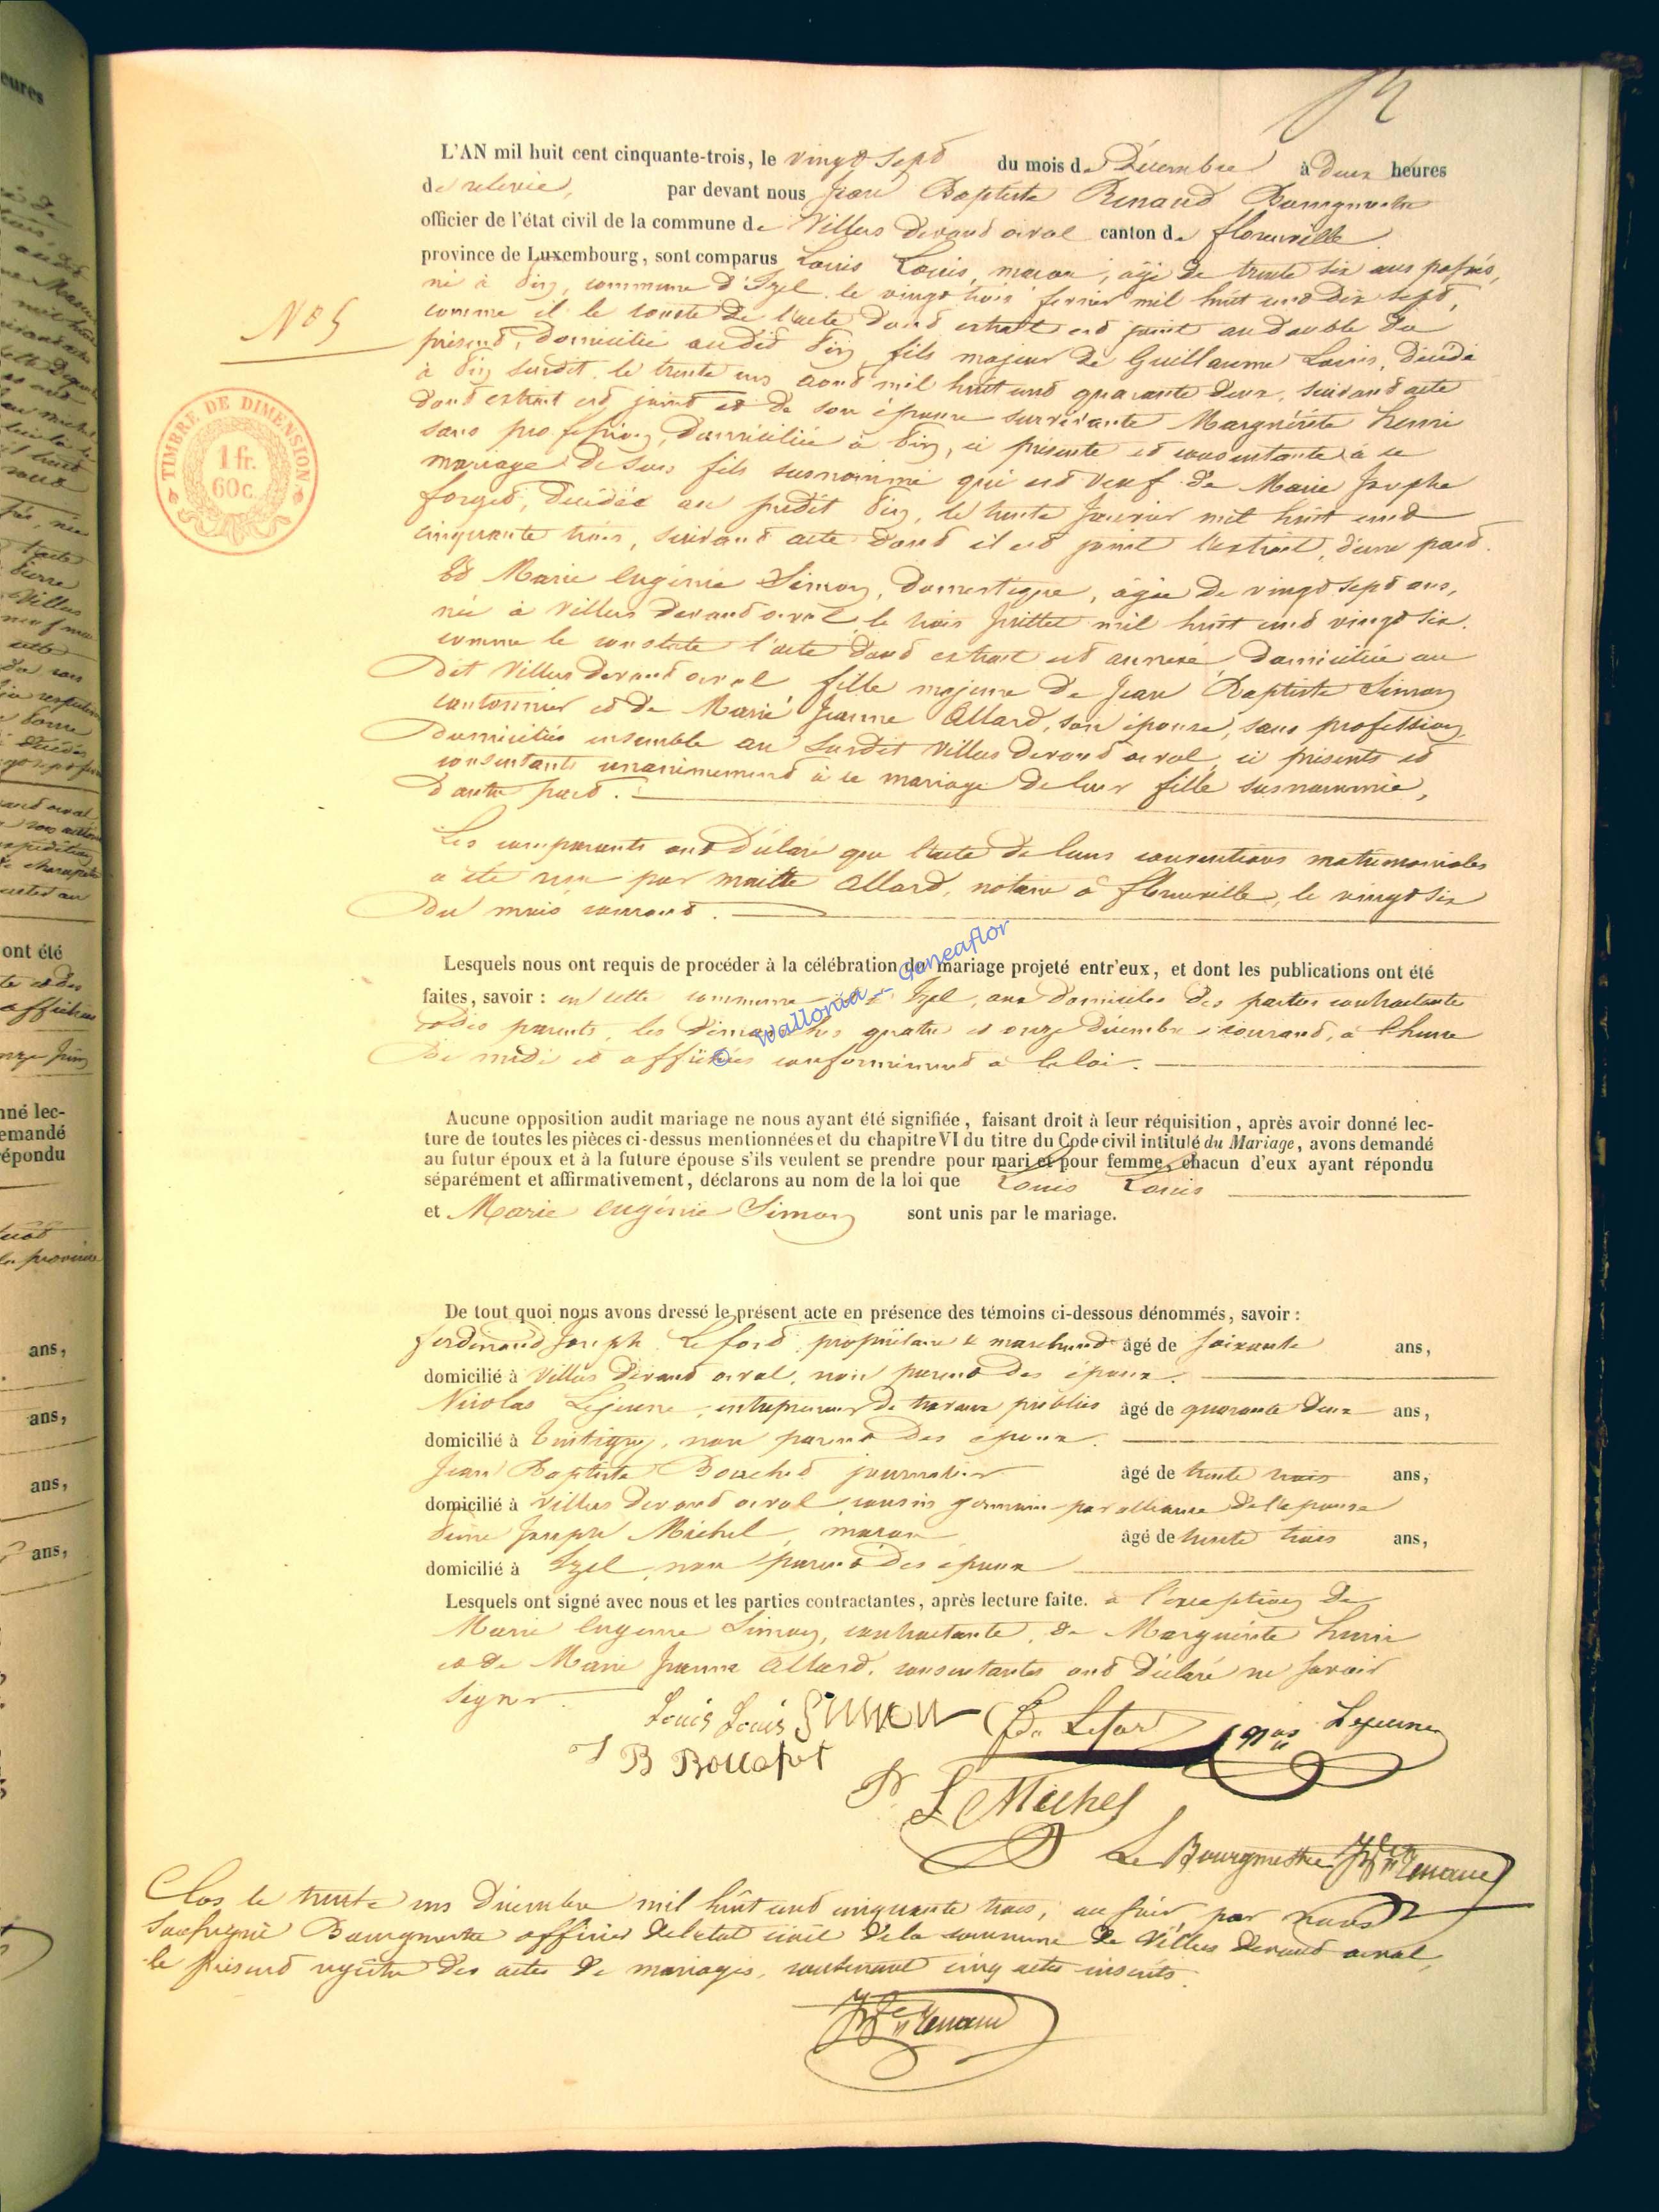 N° 5
TIMBRE DE DIMENSION
1 fr.
60 c.
L'AN mil huit cent cinquante-trois, le vingt sept du mois de Décembre à deux heures
de relevée, par devant nous Jean Baptiste Renaud Bourgmestre
officier de l'état civil de la commune de Villers devant orval canton de florenville
province de Luxembourg, sont comparus Louis Louis, maçon, âgé de trente six ans passés,
né à Pin, commune d'Izel le vingt trois fevrier mil huit cent dix sept,
comme il le conste de l'acte dont extrait est joint au double du
présent, domicilié audit Pin, fils majeur de Guillaume Louis, décédé
à Pin susdit le trente un aout mil huit cent quarante deux, suivant acte
dont extrait est joint et de son épouse survivante Marguérite henri
sans profession, domiciliée à Pin, ci présente et consentante à ce
mariage de son fils susnommé qui est veuf de Marie Josephe
forget, décédée au predit Pin, le trente Janvier mil huit cent
cinquante trois, suivant acte dont il est joint l'extrait, d'une part.
Et Marie Eugénie Simon, domestique, âgée de vingt sept ans,
née à Villers devant orval le trois Juillet mil huit cent vingt six
comme le constate l'acte dont extrait est annexé, domiciliée au
dit Villers devant orval fille majeure de Jean Baptiste Simon
cantonnier et de Marie Jeanne Allard, son épouse, sans profession,
domiciliés ensemble au susdit Villers devant orval, ci présents et
consentants unanimement à ce mariage de leur fille susnommée,
d'autre part.
Les comparants ont déclaré que l'acte de leurs conventions matrimoniales
a été reçu par maître Allard, notaire à florenville, le vingt six
du mois courant.
Lesquels nous ont requis de procéder à la célébration du mariage projeté entr'eux, et dont les publications ont été
faites, savoir : en cette commune Izel, aux domiciles des parties contractantes
et des parents, les dimanches quatre et onze décembre courant, à l'heure
de midi et affichées conformément a la loi.
© Wallonia - Geneaflor
Aucune opposition audit mariage ne nous ayant été signifiée, faisant droit à leur réquisition, après avoir donné lec-
ture de toutes les pièces ci-dessus mentionnées et du chapitre VI du titre du Code civil intitulé du Mariage, avons demandé
au futur époux et à la future épouse s'ils veulent se prendre pour mari et pour femme, chacun d'eux ayant répondu
séparément et affirmativement, déclarons au nom de la loi que Louis Louis
et Marie Eugénie Simon sont unis par le mariage.
De tout quoi nous avons dressé le présent acte en présence des témoins ci-dessous dénommés, savoir :
ferdinand Joseph Lefort, propriétaire & marchand âgé de soixante ans,
domicilié à Villers devant orval, non parent des époux.
Nicolas Lejeune, entrepreneur de travaux publics âgé de quarante deux ans,
domicilié à Tintigny, non parent des époux.
Jean Baptiste Bouchot journalier âgé de trente trois ans,
domicilié à Villers devant orval cousin germain par alliance de l'épouse
Pierre Joseph Michel, maçon âgé de trente trois ans,
domicilié à Izel, non parent des époux
Lesquels ont signé avec nous et les parties contractantes, après lecture faite. a l'exception de
Marie Eugenie Simon, contractante, de Marguérite henri
et de Marie Jeanne Allard, consentantes ont déclaré ne savoir
signer.
Louis Louis Simon Lefort Lejeune
J B
Michel
Le Bourgmestre Renaud
Clos le trente un Décembre mil huit cent cinquante trois, au soir par nous
Soussigné Bourgmestre officier de l'etat civil de la commune de Villers devant orval,
le présent registre des actes de mariages, contenant cinq actes inscrits.
Renaud